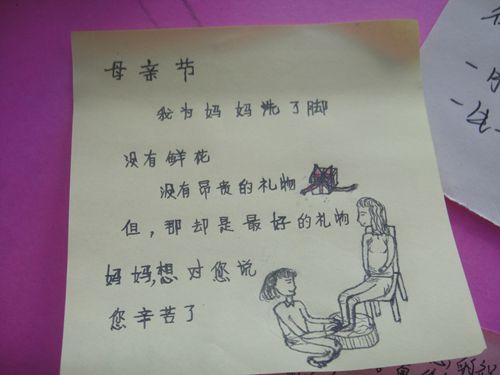 母亲节
我为妈妈洗了脚
没有鲜花
没有昂贵的礼物
但，那却是最好的礼物
妈妈，想对您说
您辛苦了